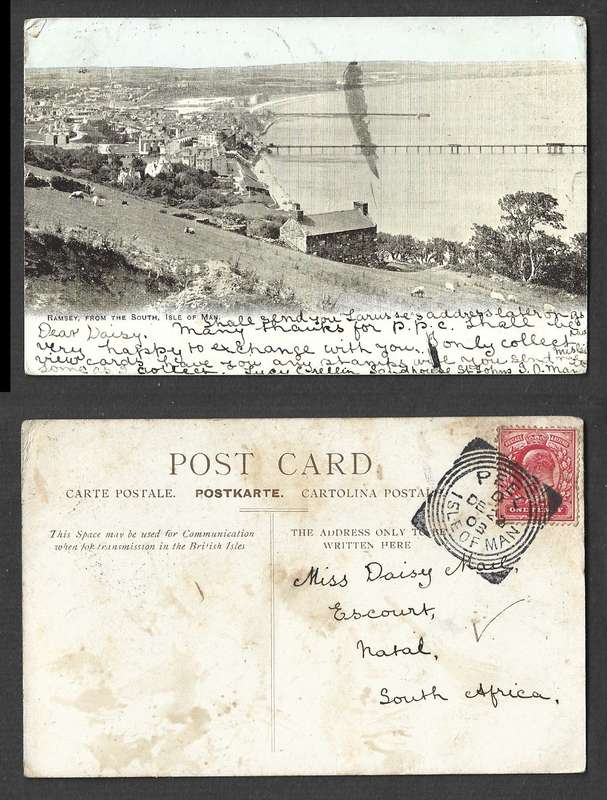 Ramsey, from the South, Isle of Man.
Shall send you Larusse's address later on as
Dear Daisy. Many thanks for P.P.C. Shall be
very happy to exchange with you. I only collect
view cards. Have you any stamps will you send me
some as I collect Lucy Crellin Sandhouse St Johns I.O.Man
POST CARD.
CARTE POSTALE. POSTKARTE. CARTOLINA POSTAL
This Space may be used for Communication
when for transmission in the British Isles
THE ADDRESS ONLY TO BE
WRITTEN HERE
POSTAGE REVENUE
ONE PENNY
PEEL
DE
03
ISLE OF MAN
Miss Daisy
Escourt,
Natal,
South Africa.